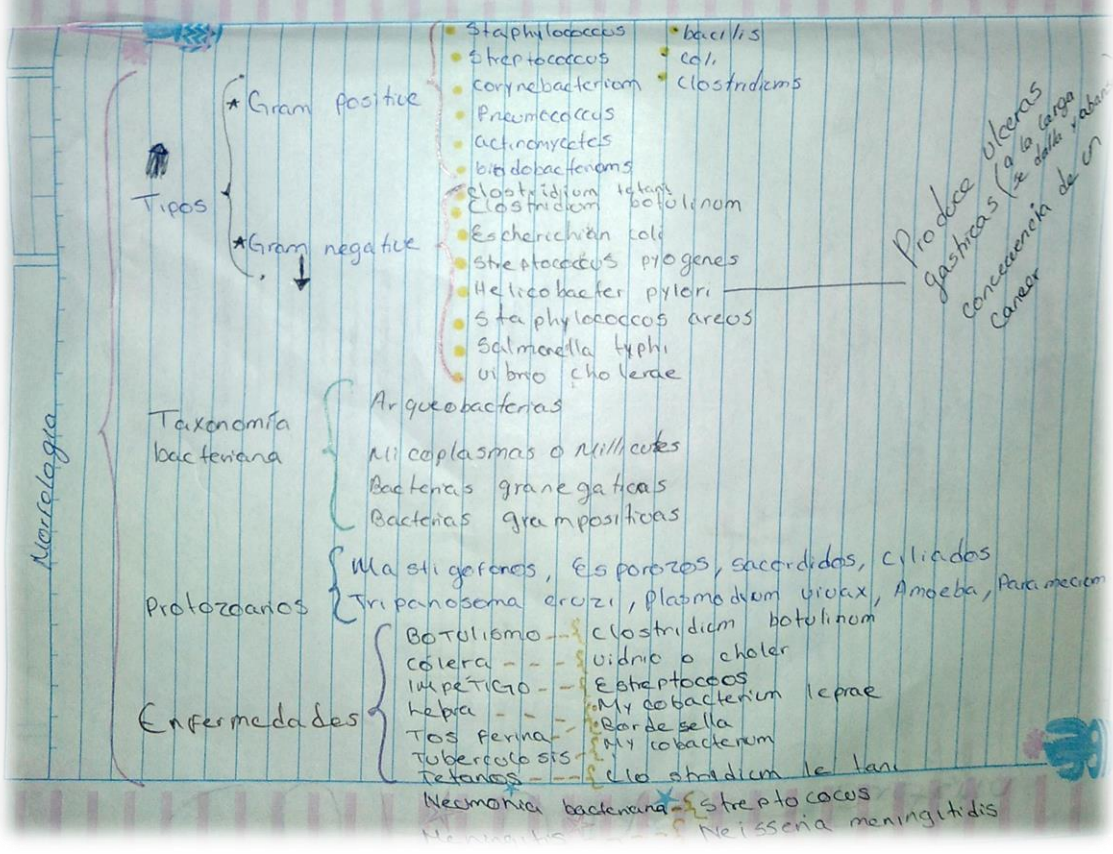 Morfología
Tipos
* Gram positive
Staphylococcus
Streptococcus
corynebacteriom
Pneumococcus
actinomycetes
biodobacterioms
bacilis
coli
clostridioms
* Gram negative
Clostridium tetani
Clostridiom botulinom
Escherichian coli
streptococcus pyogenes
Helicobacter pylori
Staphylococcos areos
Salmonella typhi
vibrio cholerae
Produce ulceras
gastricas (a la larga
se dalla y aban
concecuencia de un
cancer
Taxonomía
bacteriana
Arqueobacterias
Micoplasmas o Millicutes
Bacterias granegaticas
Bacterias grampositivas
Protozoarios
Mastigoforos, Esporozos, sacordidos, ciliados
Tripanosoma cruzi, Plasmodium vivax, Amoeba, Parameciom
Enfermedades
BOTULISMO --- Clostridiom botulinom
cólera --- vidrio o choler
IMPETIGO -- Estreptocoos
Lebra --- Mycobacterium leprae
Tos ferina - Bordesella
Tuberculosis - Mycobacterum
Tetanos --- Clostradiom le tani
Neumonia bacteriana - Streptococus
Meningitis --- Neisseria meningitidis